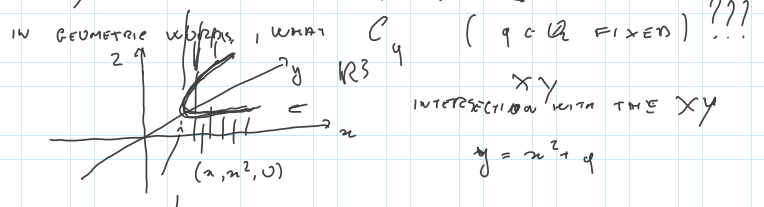 IN GEOMETRIC WORDS, WHAT C_q (q ∈ ℚ FIXED) ???
z
y
ℝ3
XY
INTERSECTION WITH THE XY
C
x
(x, x², 0)
y = x² + q